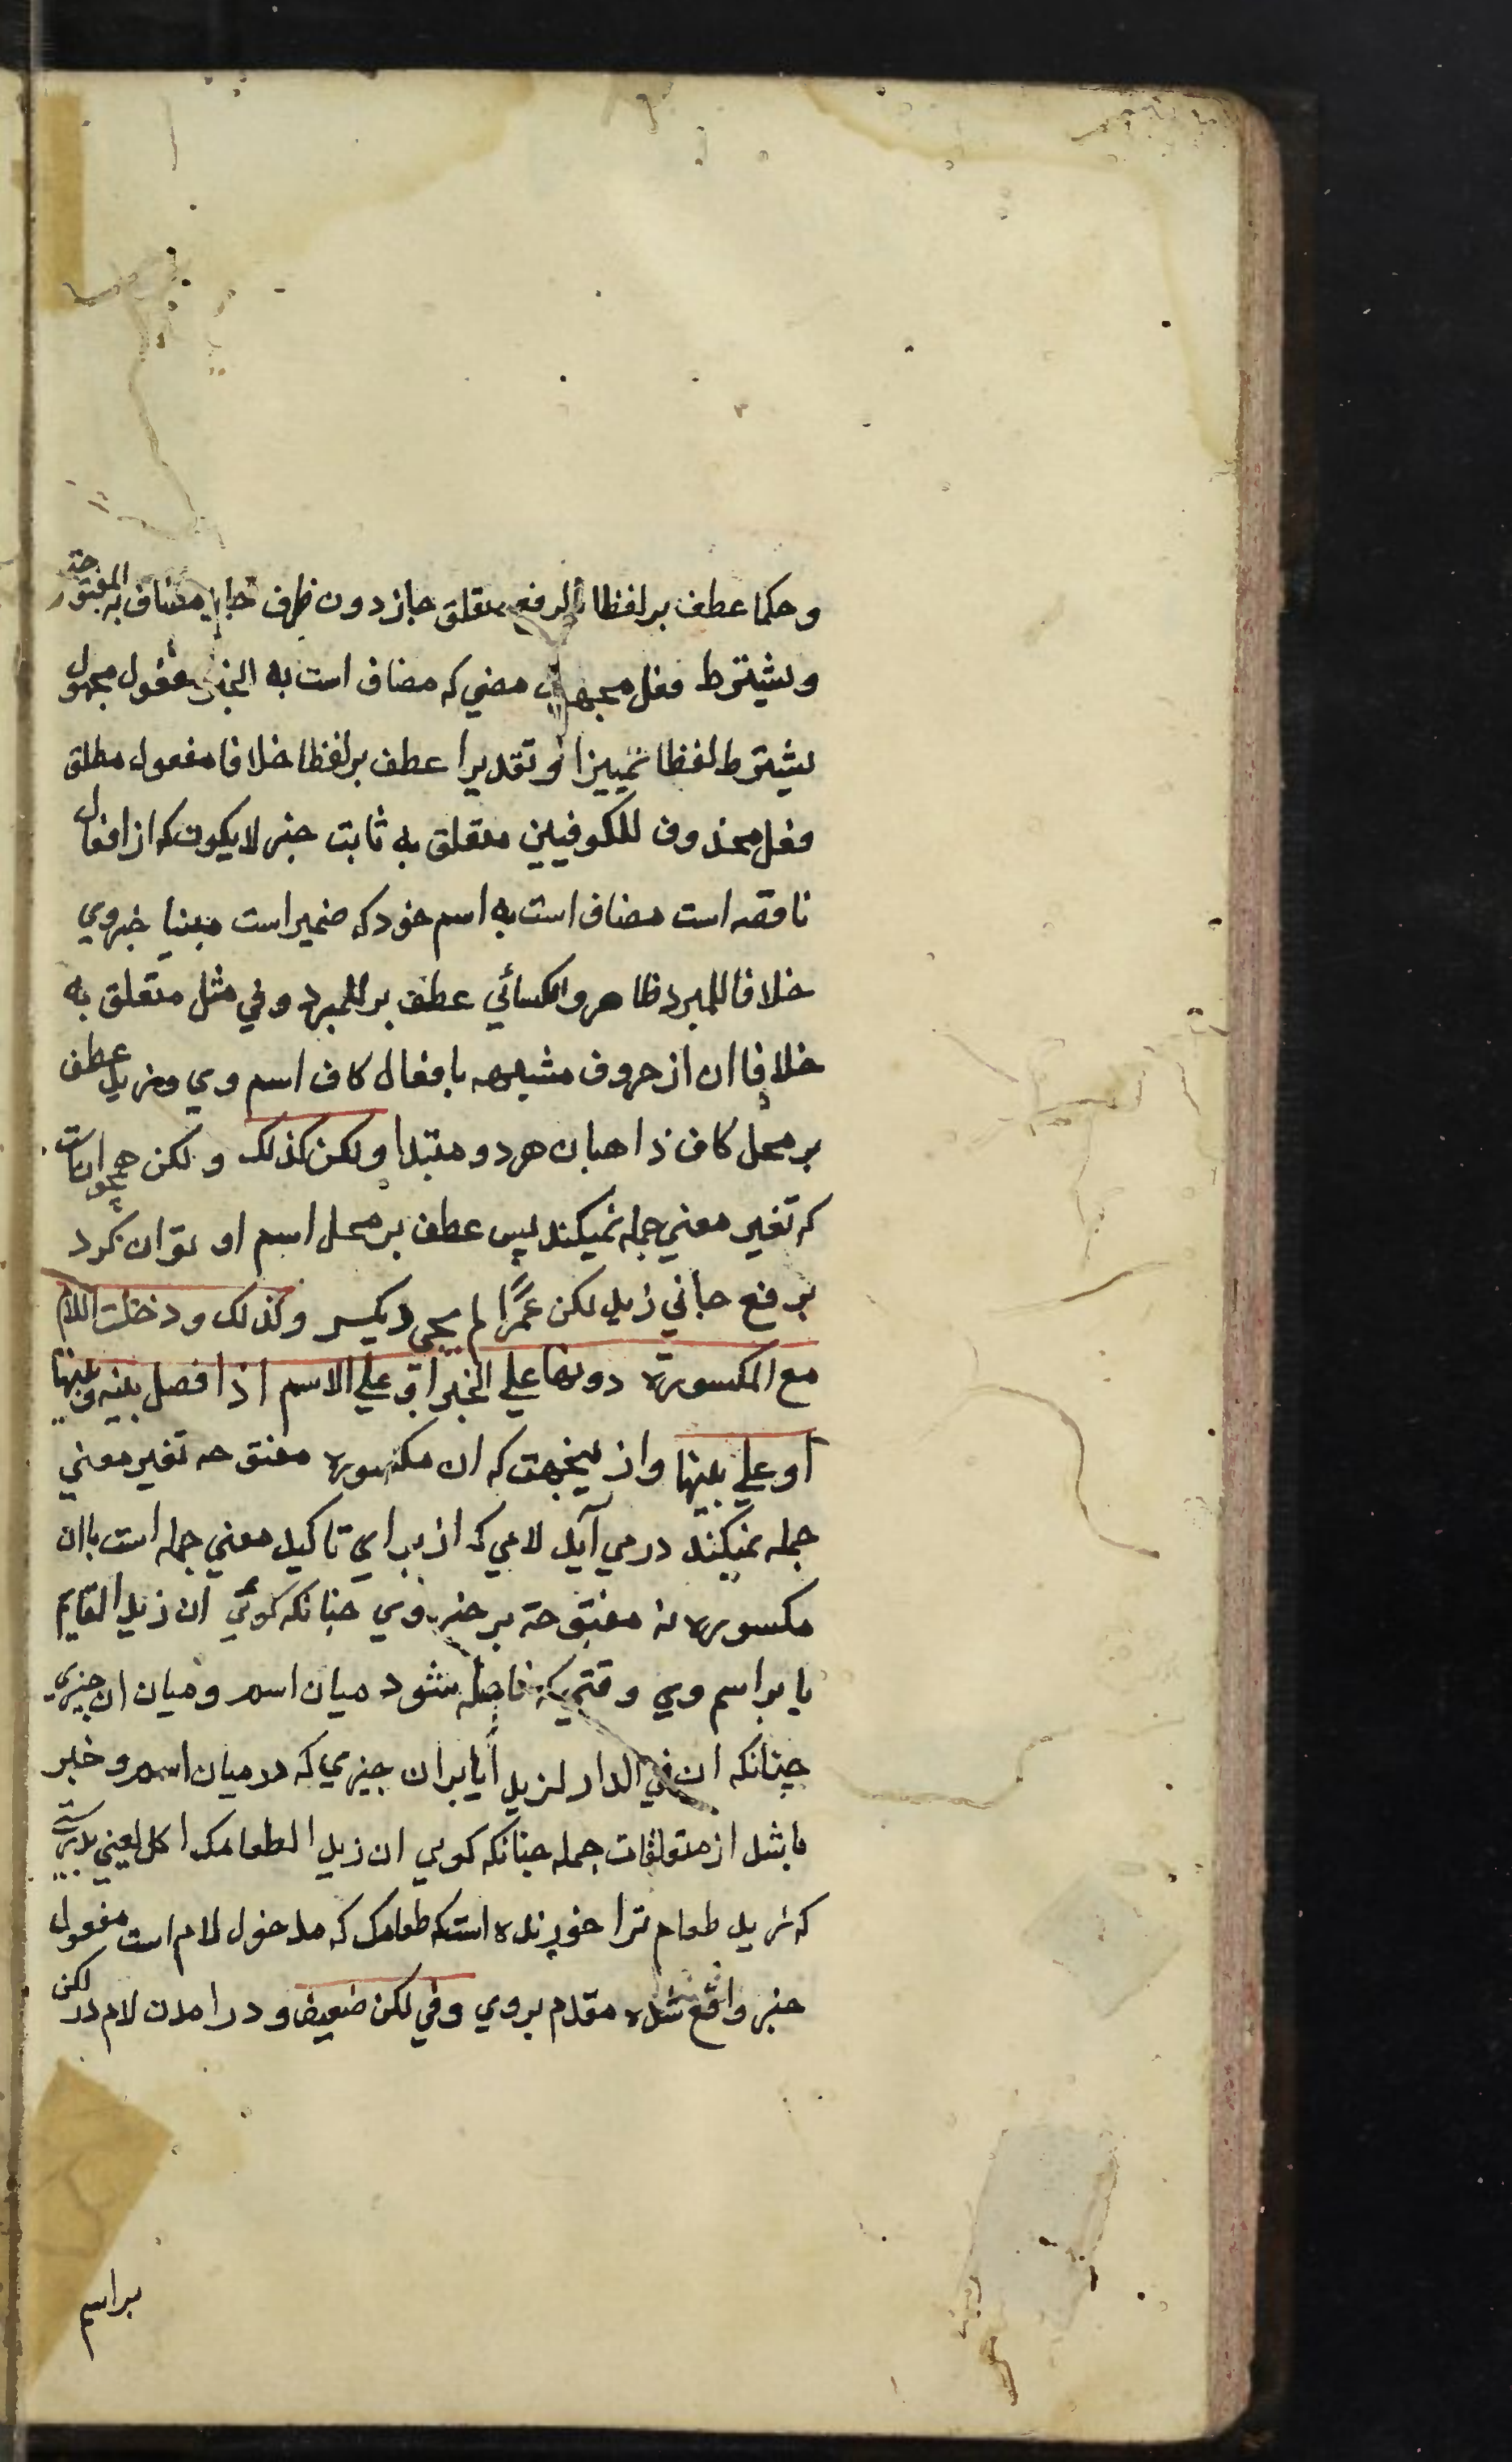 وحکما عطف بر لفظا بالرفع متعلق جاز دون ظرف جاز مضاف به المفتوحة
ویشترط فعل مجهول مضي که مضاف است به الخبر مفعول مجهول
یشترط لفظا تمییزا و تقدیرا عطف بر لفظا خلافا مفعول مطلق
فعل محذوف للکوفیین متعلق به ثابت خبر لا یکون که از افعال
ناقصه است مضاف است به اسم خود که ضمیر است مبنیا خبر وي
خلافا للمبرد ظاهر والکسائي عطف بر للمبرد وفي مثل متعلق به
خلافا ان از حروف مشبهه بافعال کاف اسم وي وزید عطف
بر محل کاف ذاهبان هر دو مبتدا ولکن کذلک و لکن همچو ان است
که تغیر معني جمله نمیکند پس عطف بر محل اسم او توان کرد
برفع جاني زید لکن عمرًا لم یجي دیکیر وکذلک ودخلت اللام
مع المکسورة دونها علي الخبر او علي الاسم اذا فصل بینه وبینها
او علي بینها واز اینجهت که ان مکسوره مفتوحه تغیر معني
جمله نمیکند در مي آید لامي که از براي تاکید معني جمله است باان
مکسوره نه مفتوحة بر خبر وي چنانکه کوئي ان زید القایم
یا بر اسم وي وقتیکه فاصله شود میان اسم و میان ان چیزي
چنانکه ان في الدار لزید ایا بران چیزي که در میان اسم و خبر
باشد از متعلقات جمله چنانکه کویي ان زید الطعامک اکل یعني بدرستي
که زید طعام ترا خورنده است که طعامک که مدخول لام است مفعول
خبر واقع شده مقدم بر وي وفي لکن ضعیف و در امدن لام در لکن
بر اسم